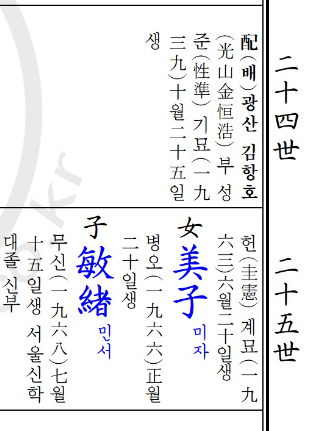 二十四世
配(배)광산 김항호
(光山金恒浩) 부 성
준(性準) 기묘(一九
三九)十월二十五일
생
二十五世
헌(圭憲) 계묘(一九
六三)六월二十일생
女美子미자
병오(一九六六)正월
二十일생
子敏緖민서
무신(一九六八)七월
十五일생 서울신학
대졸 신부
kr